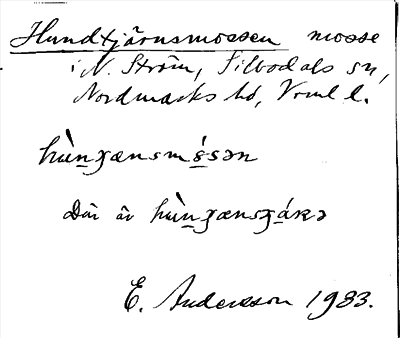 Hundtjärnsmossen mosse
i N. Ström, Silbodals sn,
Nordmarks hd, Vrml l.
hùn̲ɟænsmó̲sən
Där är hùn̲ɟænsɟá̲ṉə
E. Andersson 1983.